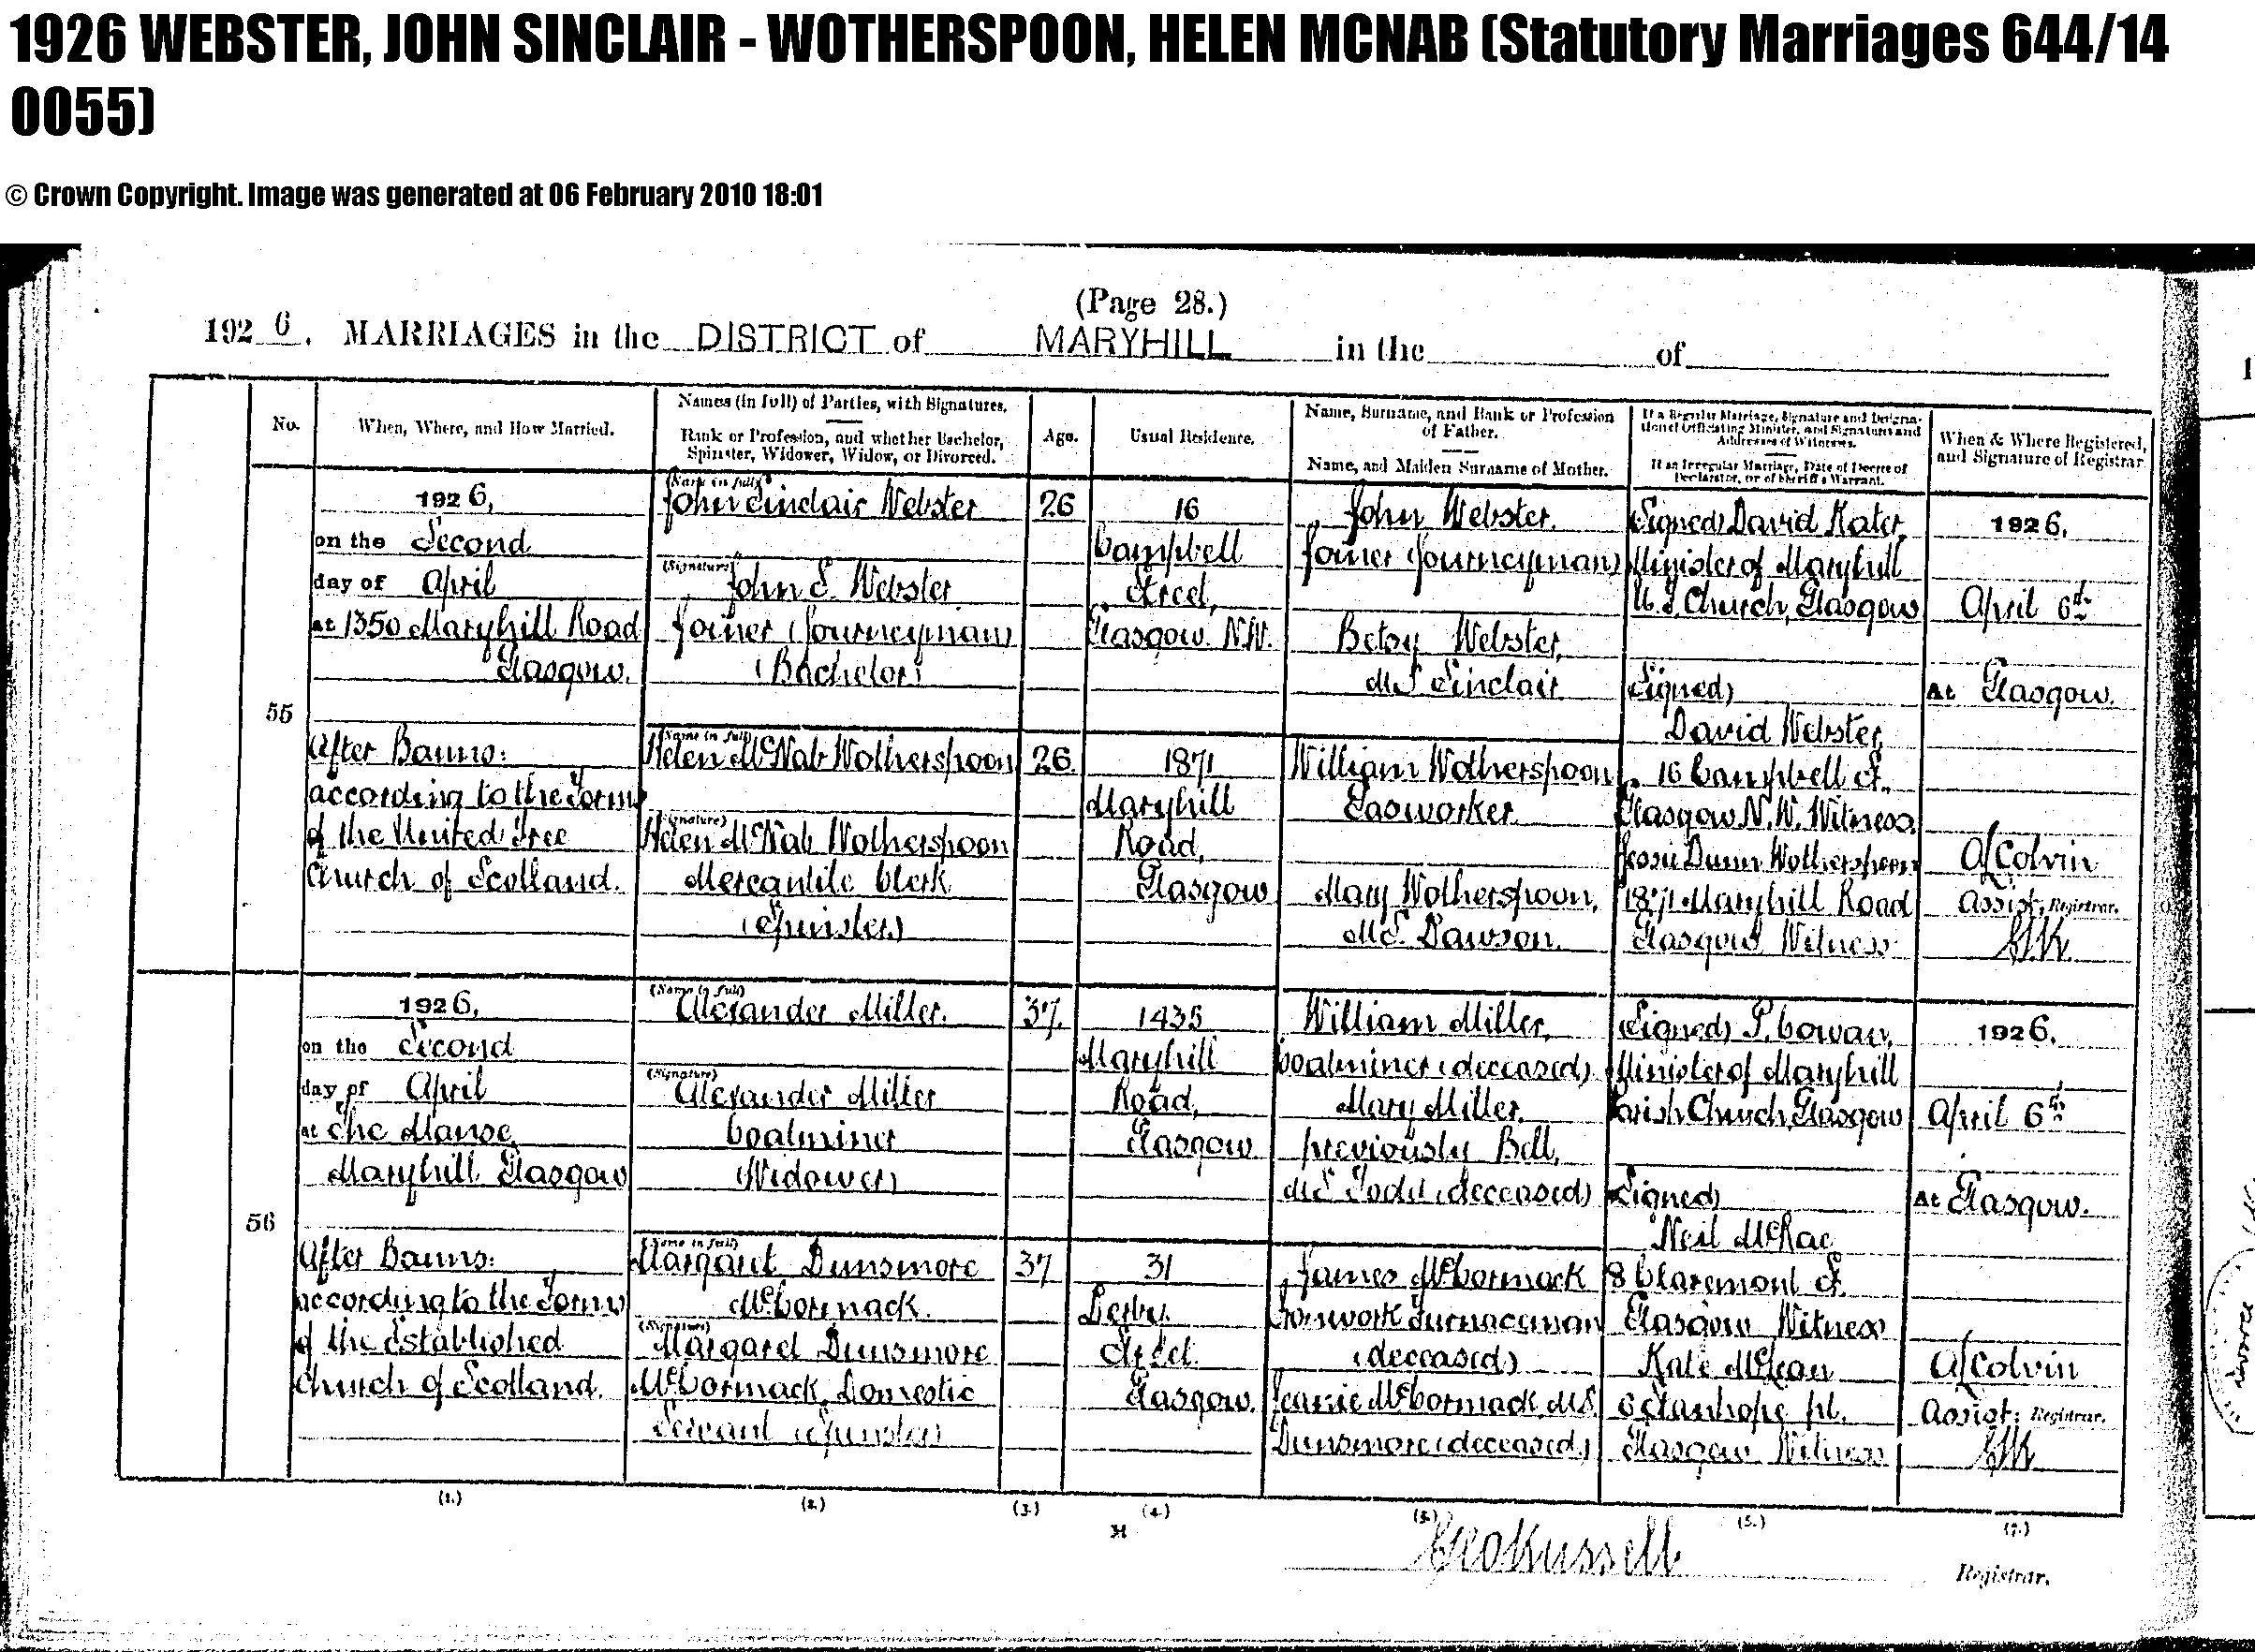 1926 WEBSTER, JOHN SINCLAIR - WOTHERSPOON, HELEN MCNAB (Statutory Marriages 644/14
0055)
© Crown Copyright. Image was generated at 06 February 2010 18:01
(Page 28.)
1926. MARRIAGES in the DISTRICT of MARYHILL in the of
No.
When, Where, and How Married.
Names (in full) of Parties, with Signatures.
Rank or Profession, and whether Bachelor,
Spinster, Widower, Widow, or Divorced.
Age.
Usual Residence.
Name, Surname, and Rank or Profession
of Father.
Name, and Maiden Surname of Mother.
If a Regular Marriage, Signature and Designa-
tion of Officiating Minister, and Signatures and
Addresses of Witnesses.
If an Irregular Marriage, Date of Decree of
Declarator, or of Sheriff's Warrant.
When & Where Registered,
and Signature of Registrar
55
1926,
on the Second
day of April
at 1350 Maryhill Road
Glasgow.
After Banns:
according to the Forms
of the United Free
Church of Scotland.
(Name in full)
John Sinclair Webster
(Signature)
John S. Webster
Joiner (Journeyman)
(Bachelor)
26
16
Campbell
Street,
Glasgow. N.W.
John Webster.
Joiner (Journeyman)
Betsy Webster,
M.S. Sinclair
(Signed) David Kater,
Minister of Maryhill
U.F. Church, Glasgow
(Signed)
David Webster,
16 Campbell St.,
Glasgow N.W. Witness
Jessie Dunn Wotherspoon
1871 Maryhill Road
Glasgow Witness
1926.
April 6th
At Glasgow.
A/Colvin
Assist. Registrar.
(Name in full)
Helen McNab Wotherspoon
(Signature)
Helen McNab Wotherspoon
Mercantile Clerk
(Spinster)
26
1871
Maryhill
Road,
Glasgow
William Wotherspoon
Gasworker
Mary Wotherspoon,
M.S. Dawson.
56
1926,
on the Second
day of April
at The Manse
Maryhill Glasgow
After Banns:
according to the Forms
of the Established
Church of Scotland.
(Name in full)
Alexander Miller.
(Signature)
Alexander Miller
Coalminer
(Widower)
37
1435
Maryhill
Road,
Glasgow
William Miller,
Coalminer (deceased)
Mary Miller,
previously Bell,
M.S. Todd (deceased)
(Signed) P. Cowan,
Minister of Maryhill
Parish Church, Glasgow
(Signed)
Neil McRae
8 Claremont St.
Glasgow Witness
Kate McLean
6 Stanhope Pl.
Glasgow Witness
1926.
April 6th
At Glasgow.
A/Colvin
Assist. Registrar.
(Name in full)
Margaret Dunsmore
McCormack.
(Signature)
Margaret Dunsmore
McCormack, Domestic
Servant (Spinster)
37
31
Derby
Street
Glasgow.
James McCormack
Ironwork Furnaceman
(deceased)
Jeanie McCormack, M.S.
Dunsmore (deceased)
(1.)
(2.)
(3.)
(4.)
(5.)
(7.)
H
Geo Russell
Registrar.